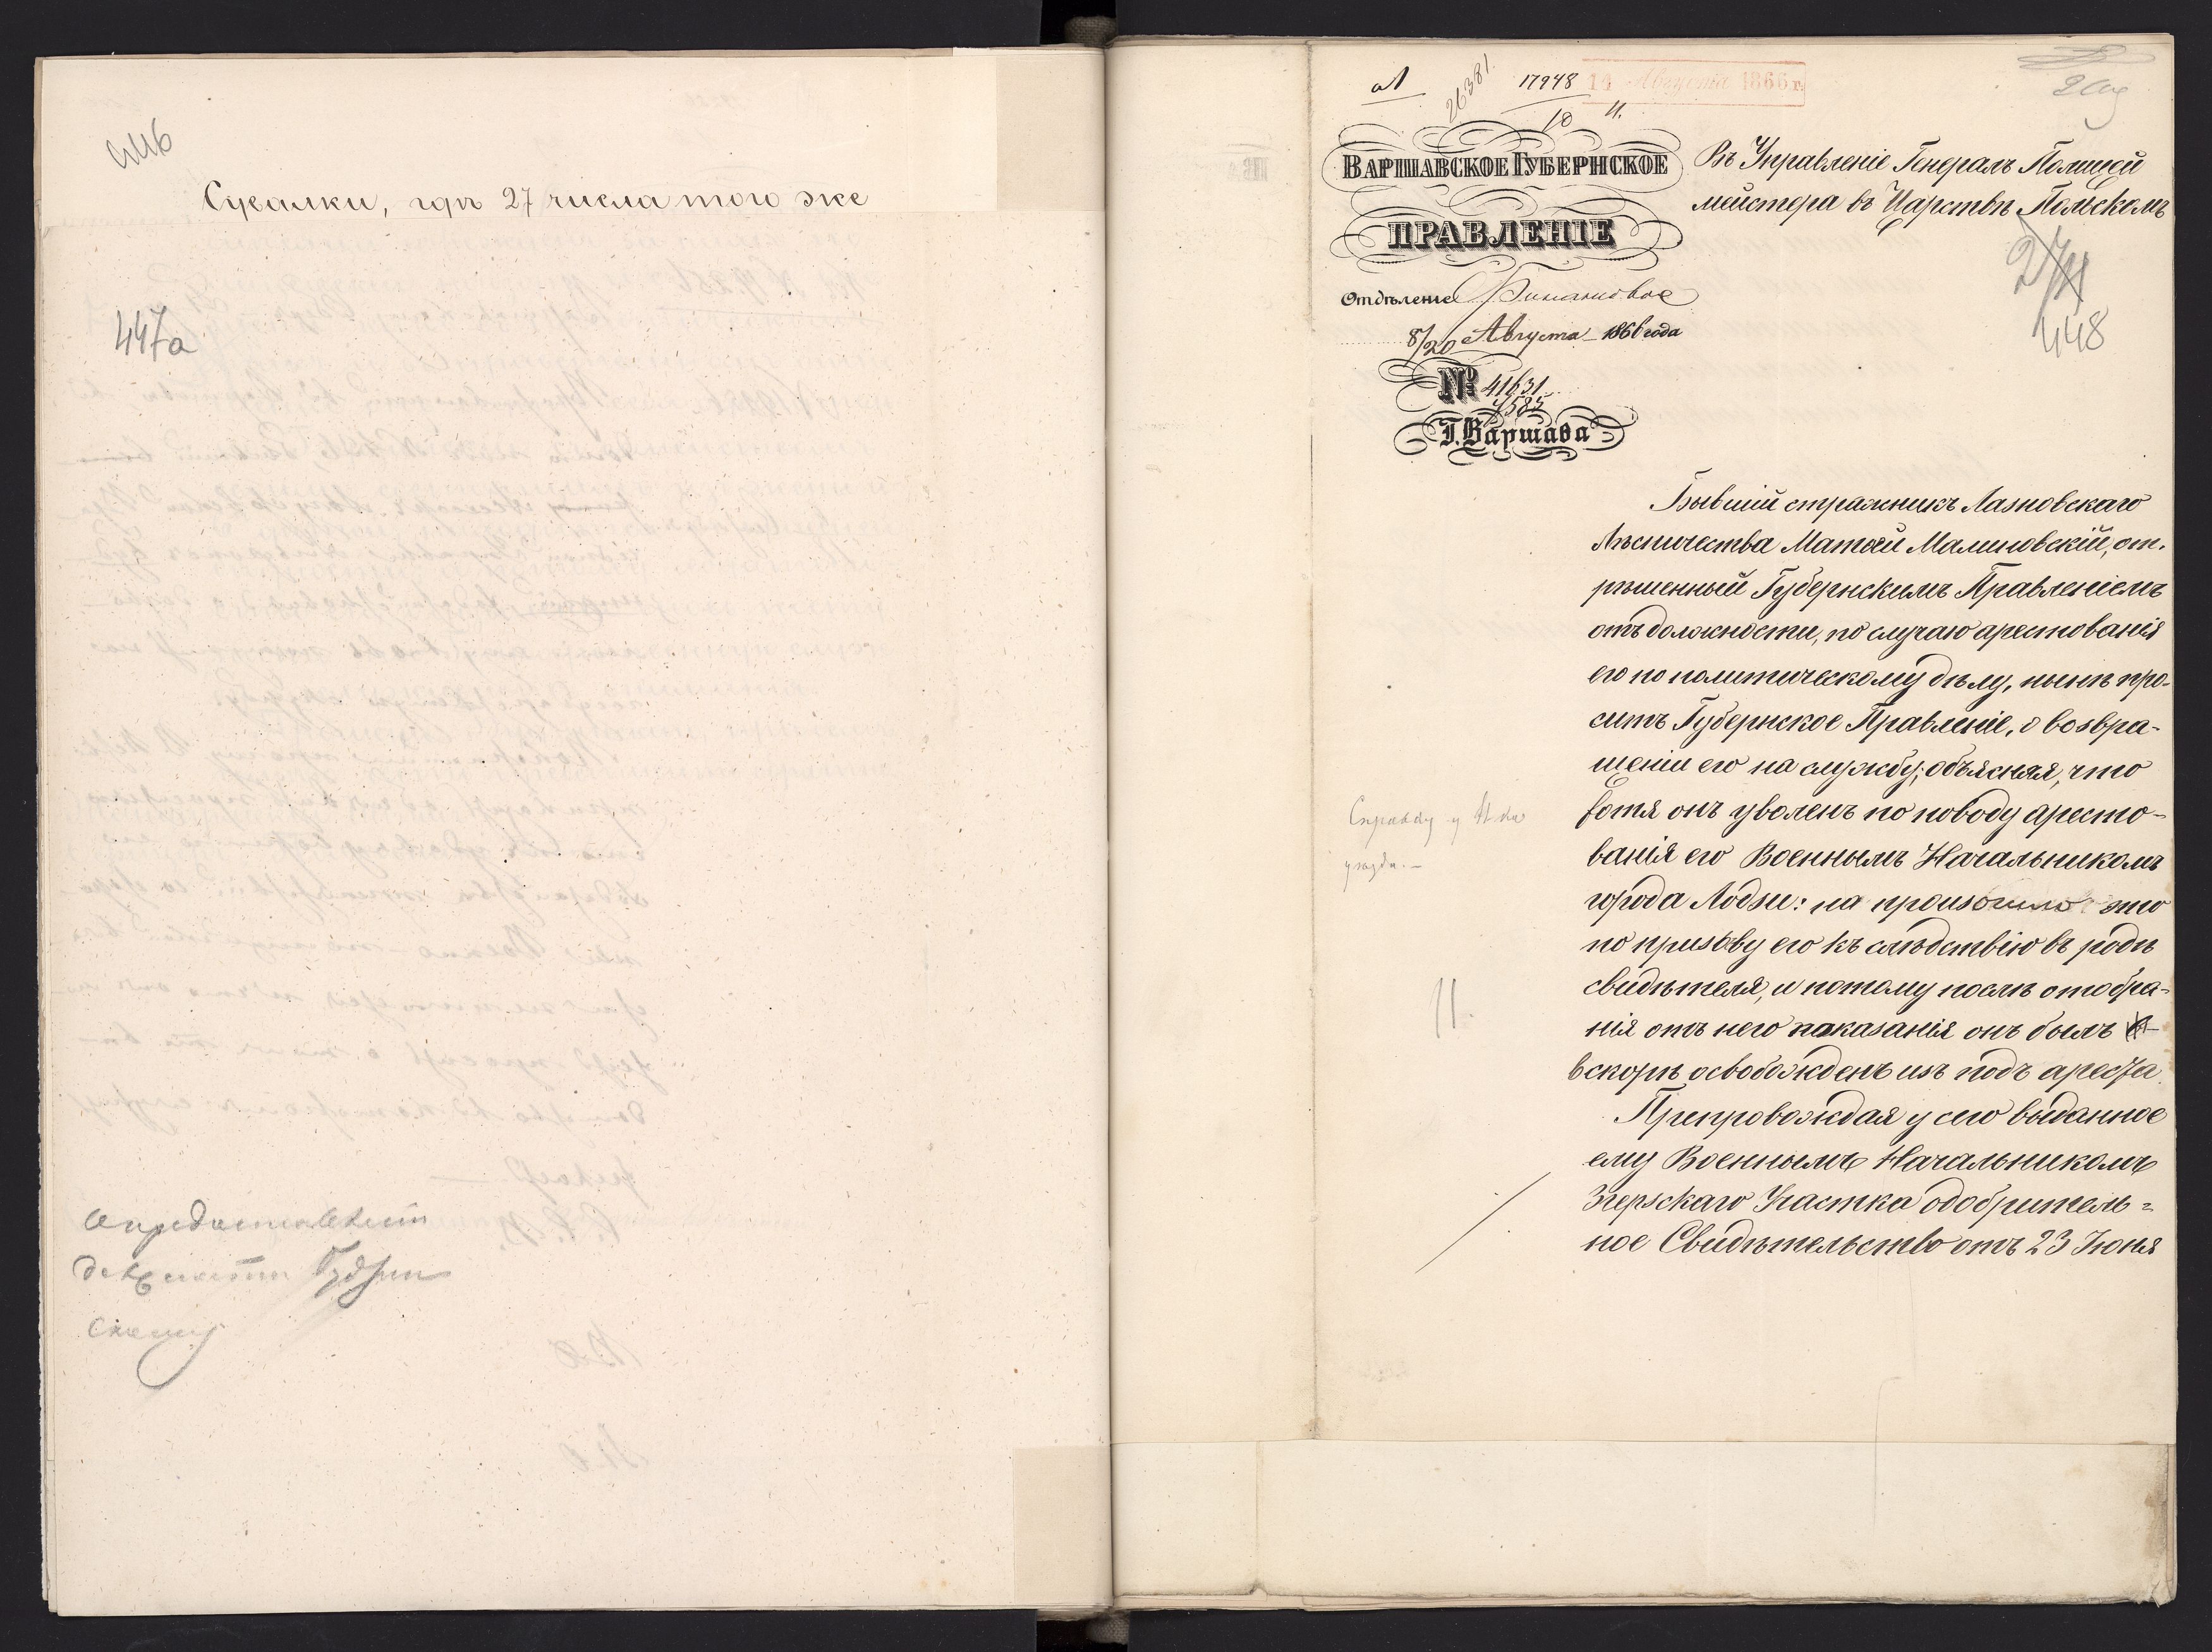 446
Сувалки, гдѣ 27 числа того же
447а
26381
17948
14 Августа 1866 г.
10 ч.
ВАРШАВСКОЕ ГУБЕРНСКОЕ
ПРАВЛЕНІЕ
Отдѣленіе Финансовое
8/20 Августа 1866 года
№ 41631
4585
Г. Варшава
Въ Управленіе Генералъ Полицей
мейстера въ Царствѣ Польскомъ
448
Бывшій стражникъ Лазновскаго
Лѣсничества Матѳей Малиновскій, от-
рѣшенный Губернскимъ Правленіемъ
отъ должности, по случаю арестованія
его по политическому дѣлу, нынѣ про-
ситъ Губернское Правленіе, о возвра-
щеніи его на службу; объясняя, что
хотя онъ уволенъ по поводу аресто-
ванія его Военнымъ Начальникомъ
города Лодзи: на произошло это
по призыву его къ слѣдствію въ родѣ
свидѣтеля, и потому послѣ отобра-
нія отъ него показанія онъ былъ
вскорѣ освобожденъ изъ подъ ареста.
Препровождая у сего выданное
ему Военнымъ Начальникомъ
Згерскаго Участка одобритель-
ное Свидѣтельство отъ 23 Іюня
Справку у
уѣзда.